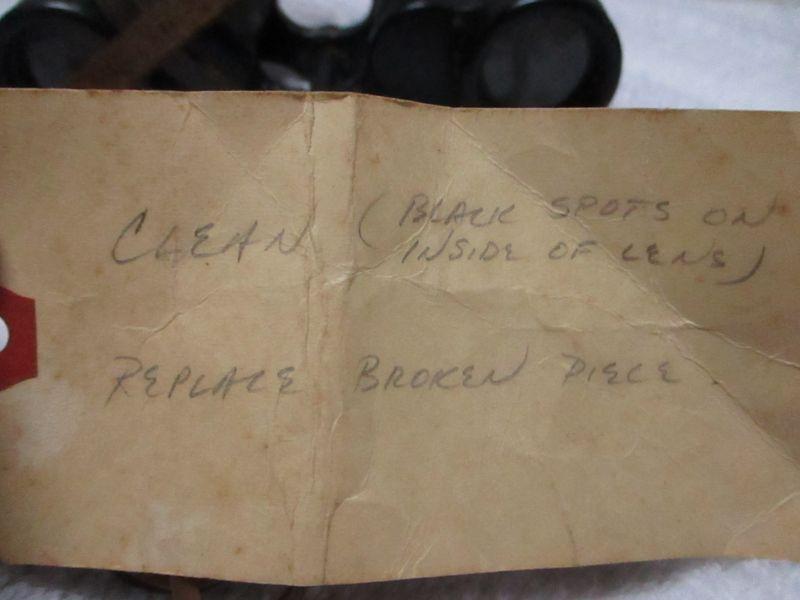 CLEAN (BLACK SPOTS ON
INSIDE OF LENS)
REPLACE BROKEN PIECE